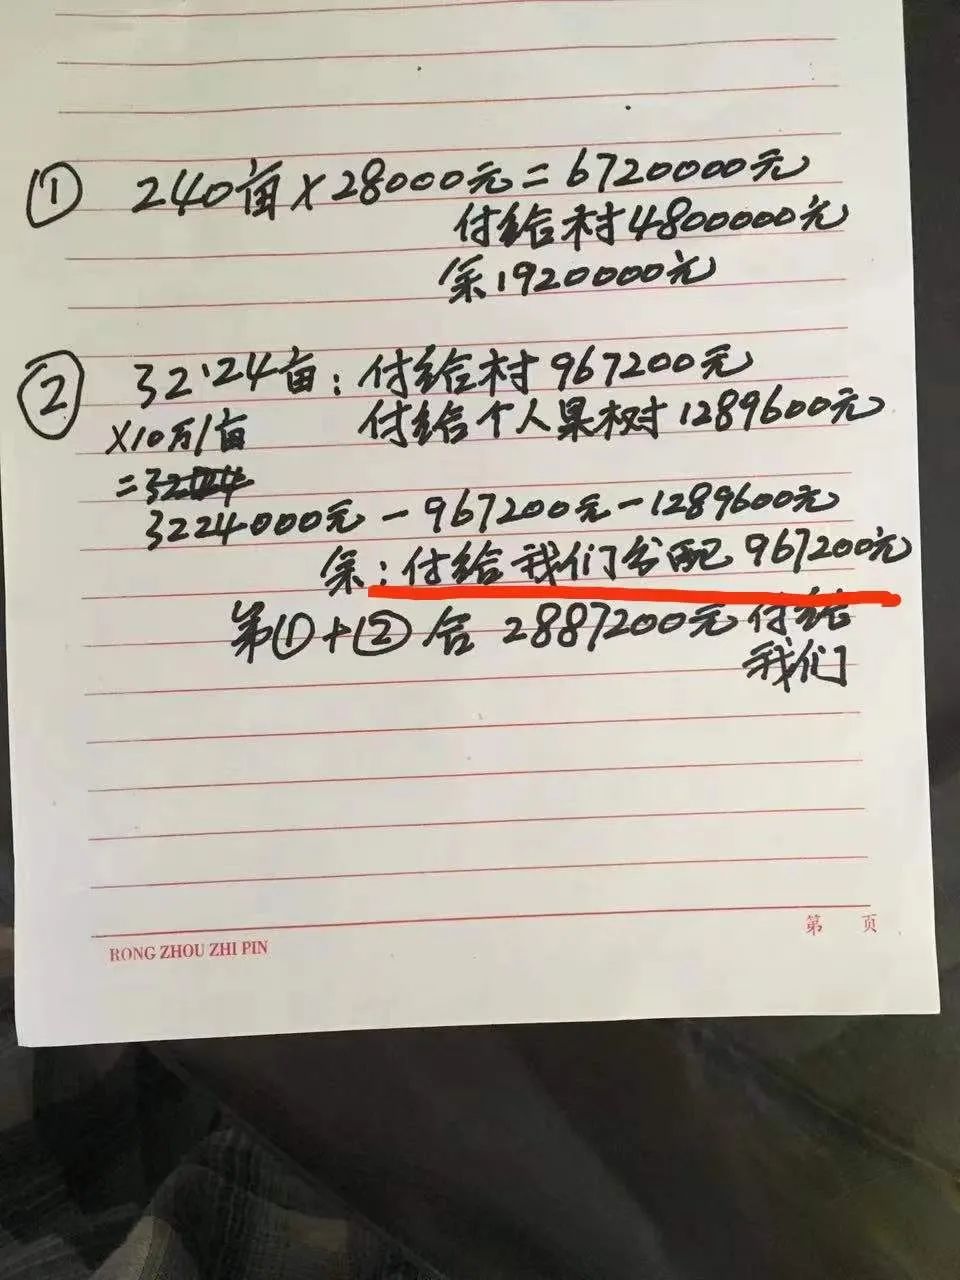 ① 240亩×28000元=6720000元
付给村4800000元
余1920000元
② 32.24亩:付给村967200元
×10万/亩 付给个人果树1289600元
=3224
3224000元-967200元-1289600元
余:付给我们分配967200元
第①+②合2887200元付给
我们
第 页
RONG ZHOU ZHI PIN